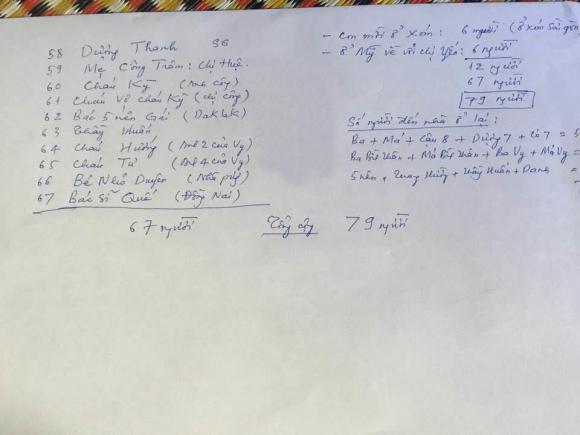 58 Dương Thanh SG
59 Mẹ Công Trâm: Chị Huệ.
60 Cháu Kỳ (Anh Công)
61 Cháu Vợ cháu Kỳ (chị Công)
62 Bác 5 nên Gái (Dak Lak)
63 Thầy Huấn
64 Cháu Hương (Anh 2 của Vy)
65 Cháu Tư (Anh 4 của Vy)
66 Bé Nhỏ Duyên
67 Bác Sĩ Quế (Đồng Nai)
67 người Tổng cộng 79 người
- Con mời ở xóm: 6 người (ở xóm Sài gòn
- ở Mỹ về với chị Yến: 6 người
12 người
67 người
79 người
Số người đến nhà ở lại:
Ba + Má + Cậu 8 + Dượng 7 + Cô 7 = 5
+ Ba Vy + Má Vy =
5 nên + + Thầy Huấn + Danh =